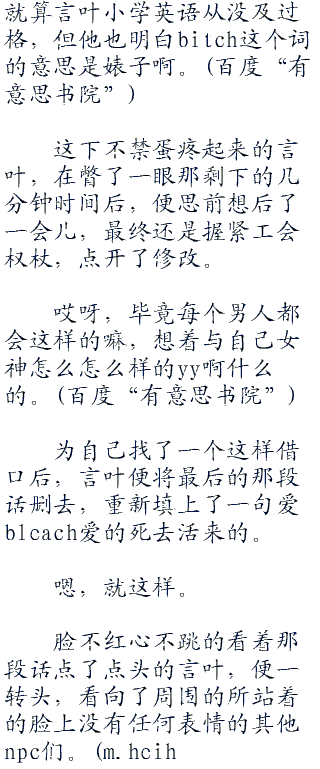 就算言叶小学英语从没及过
格，但他也明白bitch这个词
的意思是婊子啊。(百度“有
意思书院”)
这下不禁蛋疼起来的言
叶，在瞥了一眼那剩下的几
分钟时间后，便思前想后了
一会儿，最终还是握紧工会
权杖，点开了修改。
哎呀，毕竟每个男人都
会这样的嘛，想着与自己女
神怎么怎么样的yy啊什么
的。(百度“有意思书院”)
为自己找了一个这样借
口后，言叶便将最后的那段
话删去，重新填上了一句爱
blcach爱的死去活来的。
嗯，就这样。
脸不红心不跳的看着那
段话点了点头的言叶，便一
转头，看向了周围的所站着
的脸上没有任何表情的其他
npc们。(m.hcih